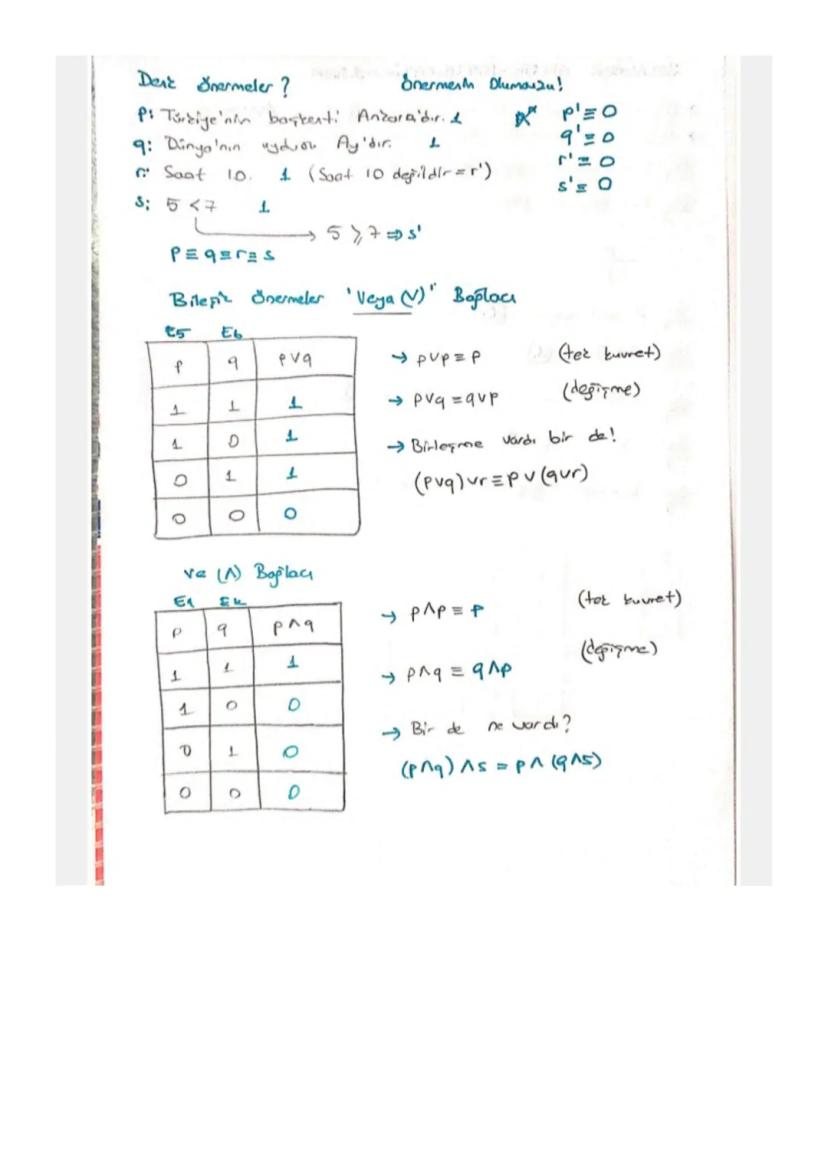 Denk Önermeler? Önermenin Olumsuzu!
p: Türkiye'nin başkenti Ankara'dır. 1 p'≡0
q: Dünya'nın uydusu Ay'dır. 1 q'≡0
r: Saat 10. 1 (Saat 10 değildir = r') r'≡0
s: 5<7 1 s'≡0
5⩾7 ⇒ s'
p≡q≡r≡s
Bileşik Önermeler "Veya (V)" Bağlacı
E5 E6
p q pvq
1 1 1
1 0 1
0 1 1
0 0 0
→ pvp≡p (tek kuvvet)
→ pvq≡qvp (değişme)
→ Birleşme vardı bir de!
(pvq)vr≡pv(qvr)
ve (Λ) Bağlacı
p q p∧q
1 1 1
1 0 0
0 1 0
0 0 0
→ p∧p≡p (tek kuvvet)
→ p∧q≡q∧p (değişme)
→ Bir de ne vardı?
(p∧q)∧s=p∧(q∧s)